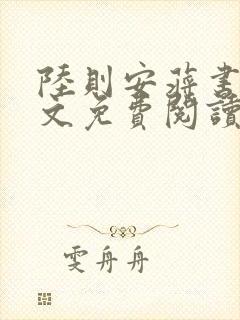 陸則安蔣書
文免費閱讀
雯舟舟